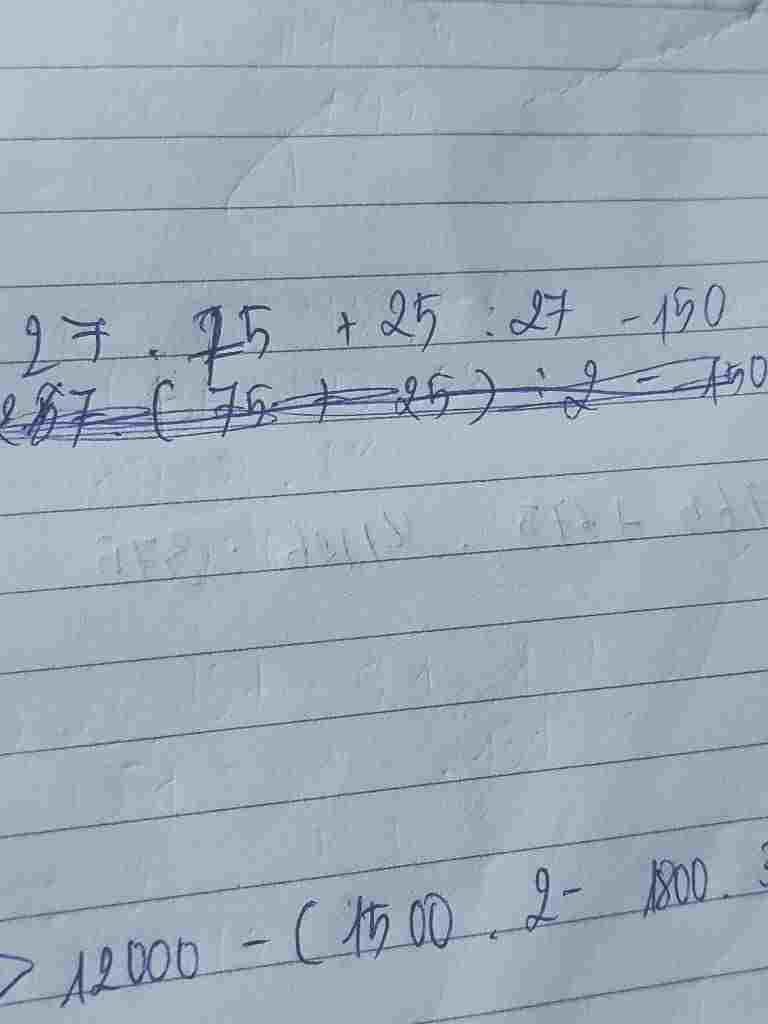 27 . 75 + 25 : 27 - 150
(75 + 25) : 2 - 150
12000 - (1500 . 2 - 1800 .